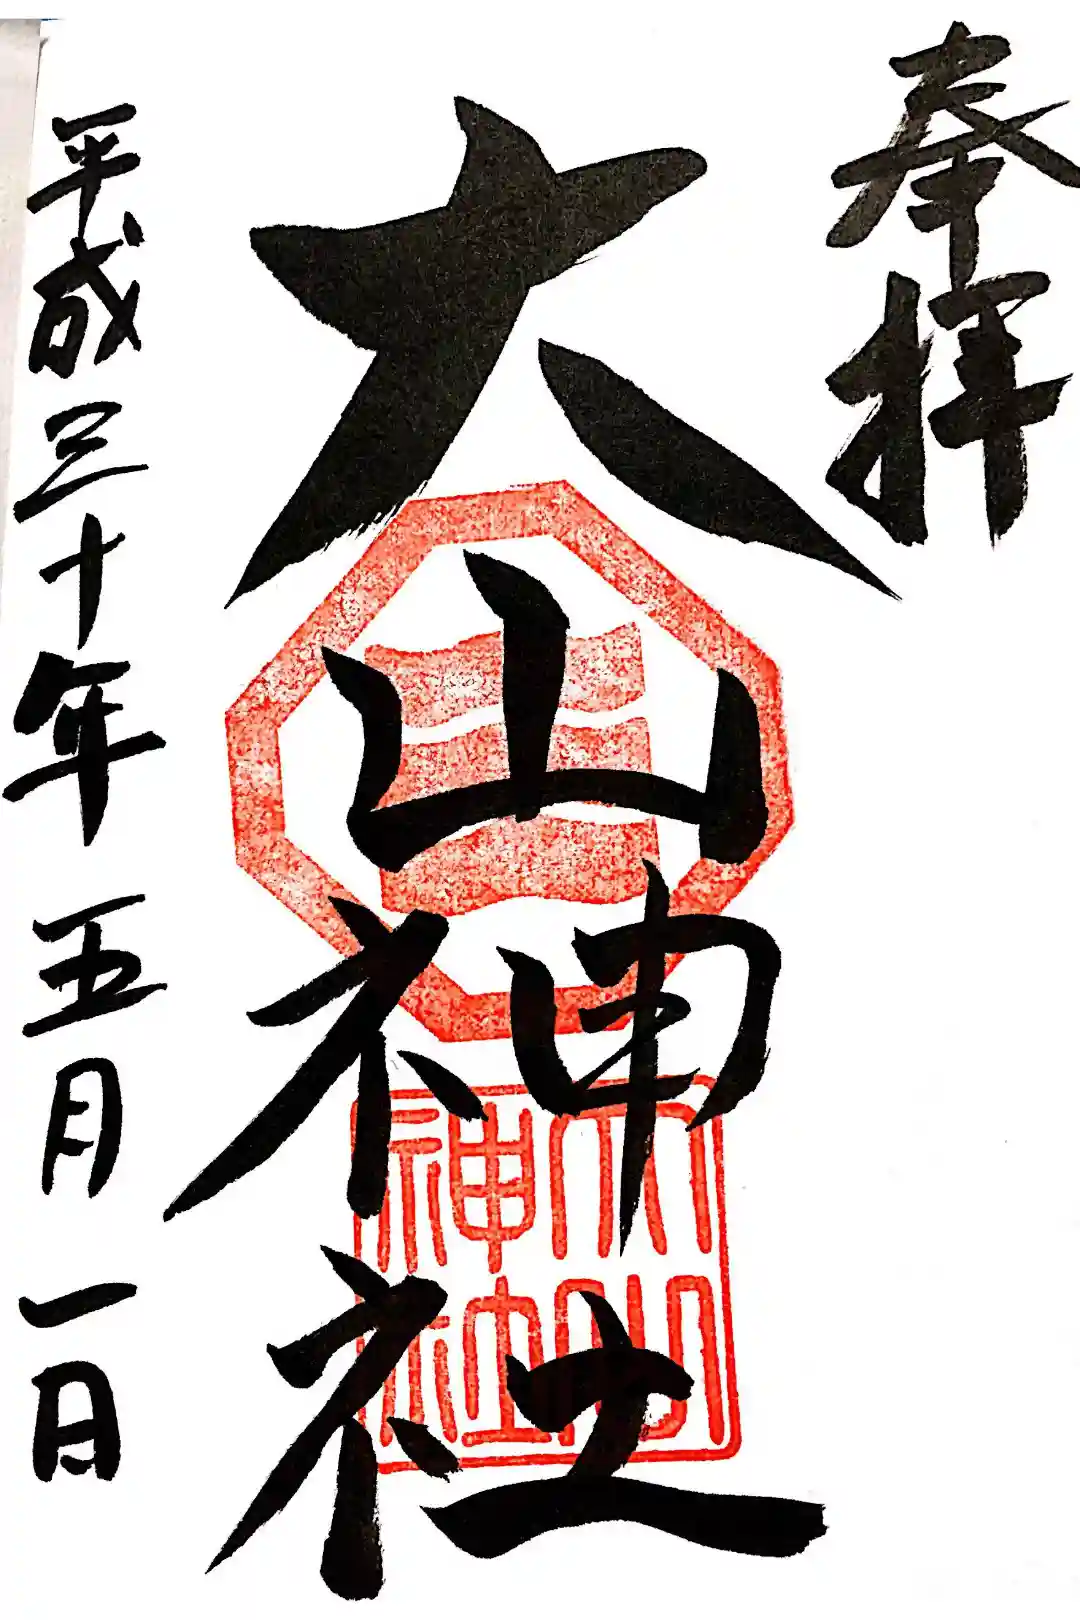 奉拝
大山神社
大山神社
平成三十年五月一日